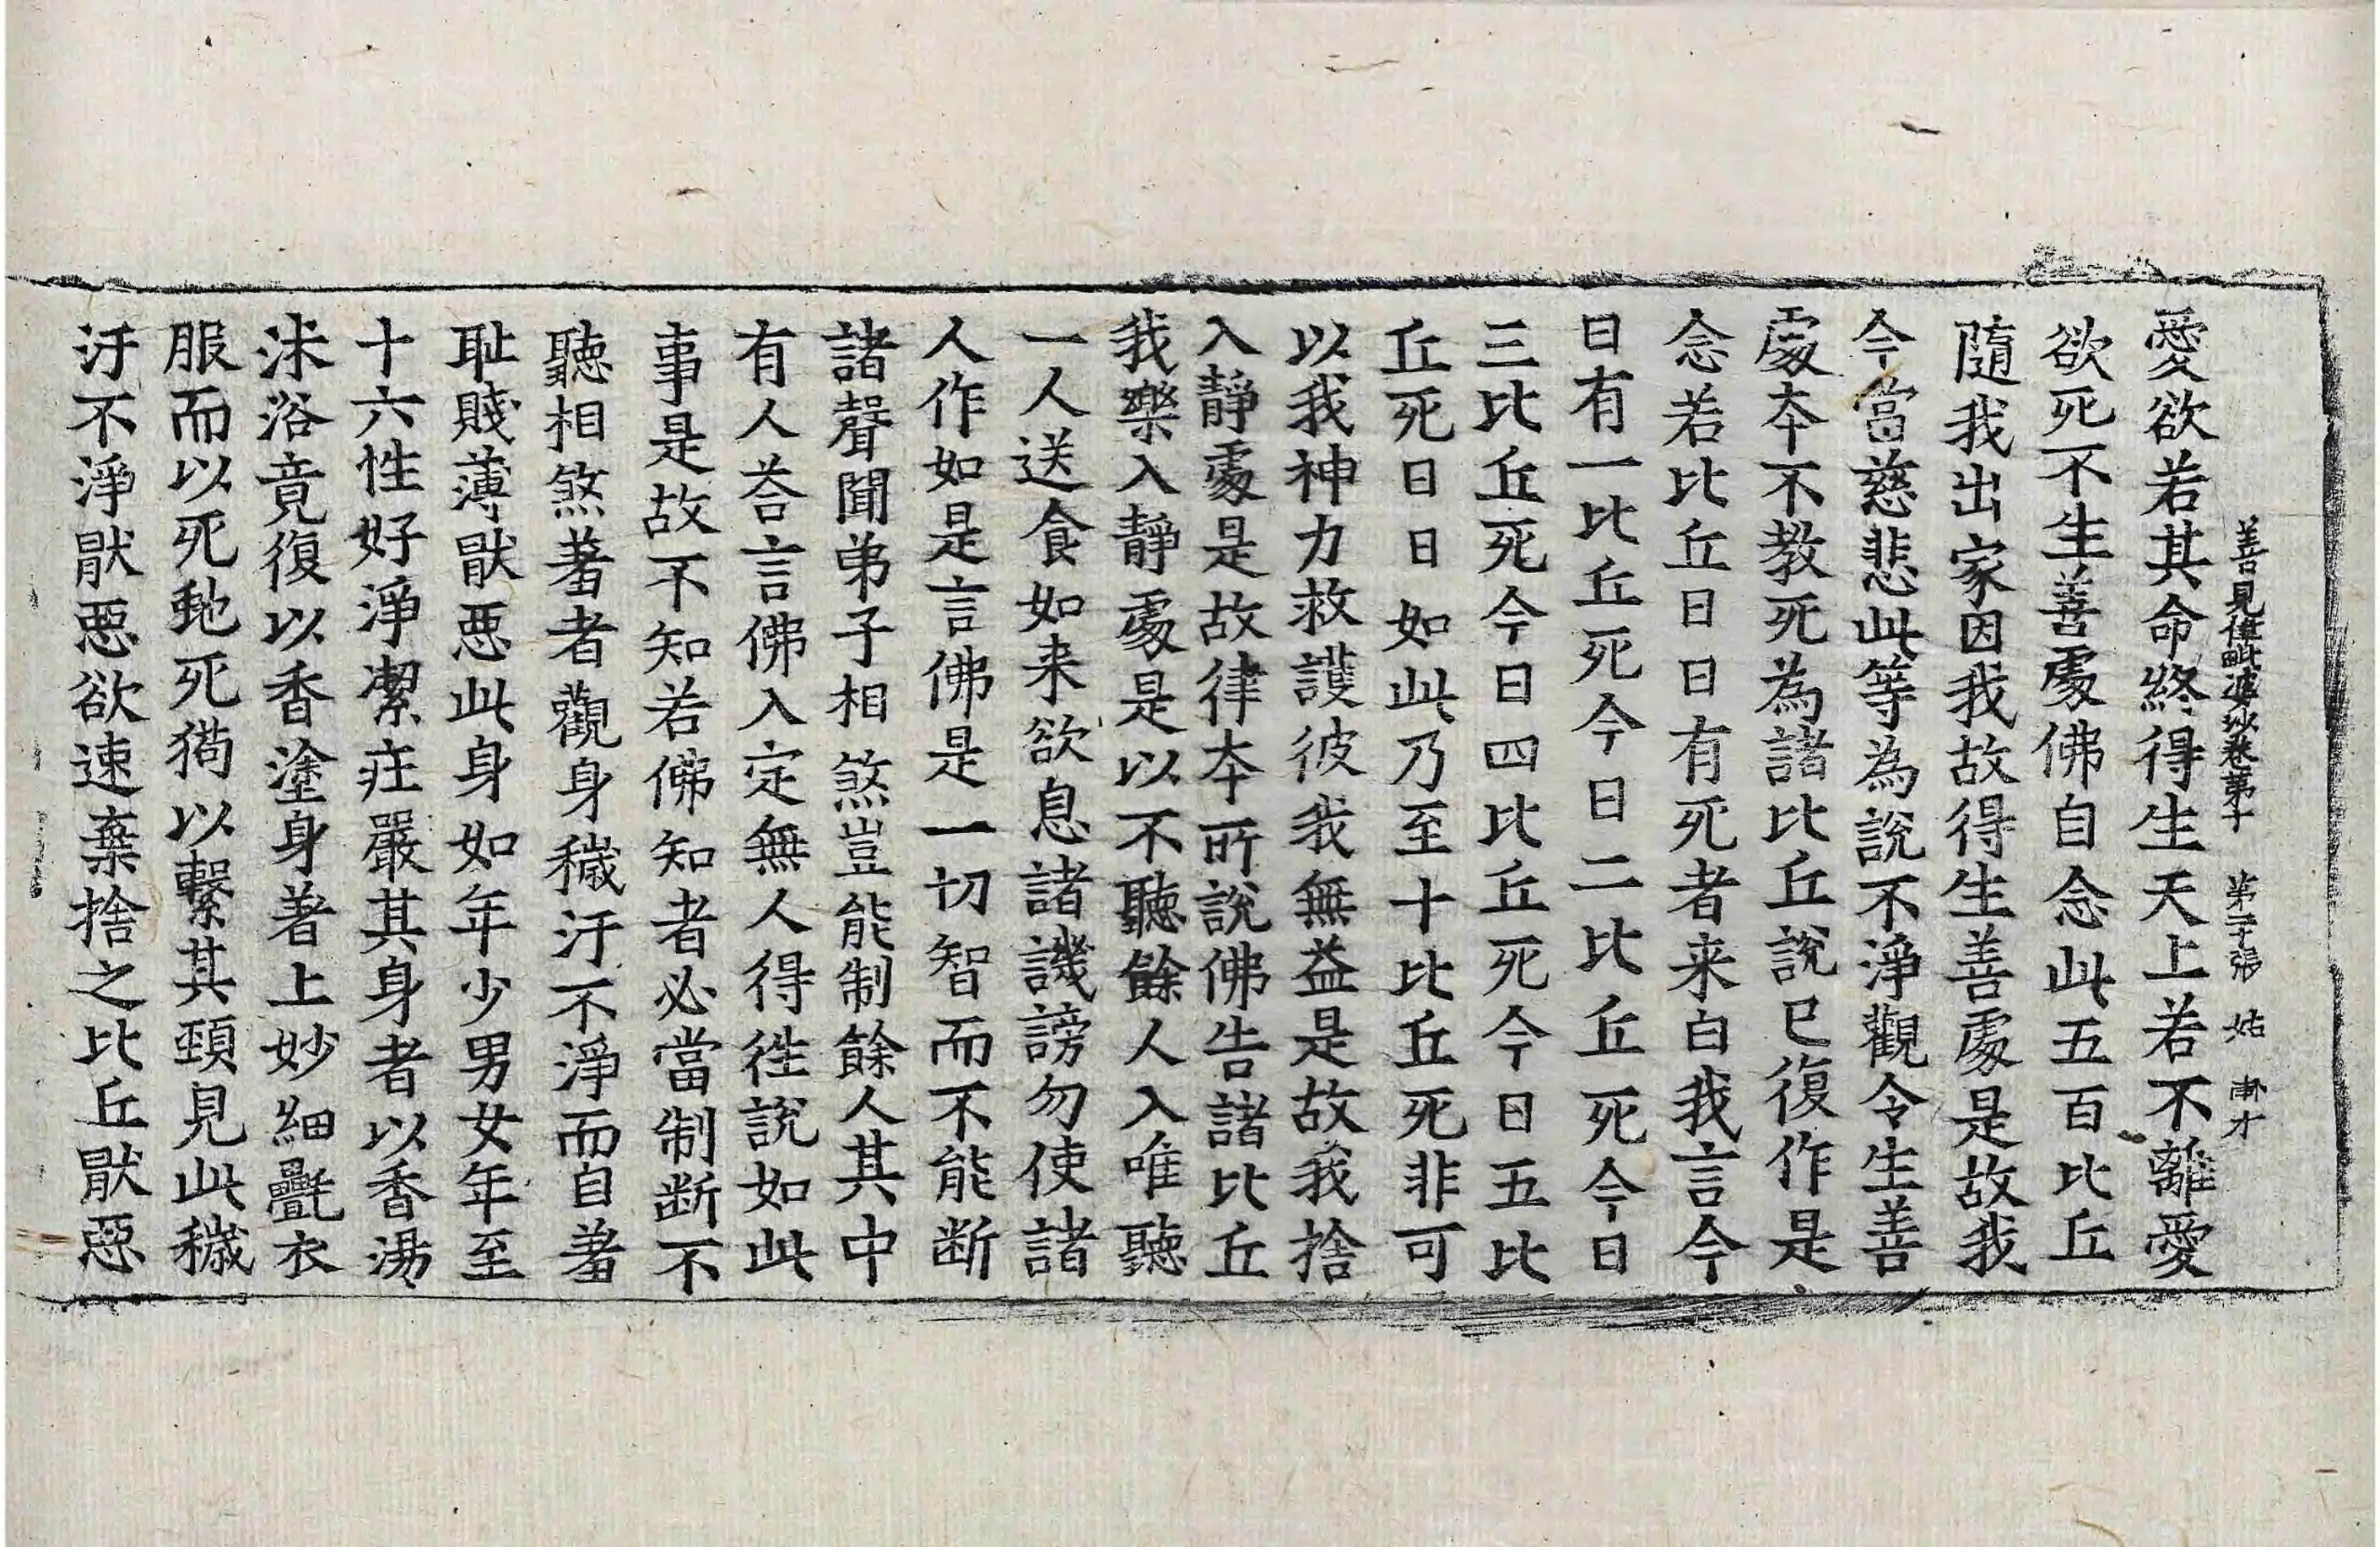 善見律毗婆沙卷第十 第二十張 姑
愛欲若其命終得生天上若不離愛
欲死不生善處佛自念此五百比丘
隨我出家因我故得生善處是故我
今當慈悲此等為說不淨觀令生善
處本不教死為諸比丘說已復作是
念若比丘日日有死者来白我言今
日有一比丘死今日二比丘死今日
三比丘死今日四比丘死今日五比
丘死日日如此乃至十比丘死非可
以我神力救護彼我無益是故我捨
入靜處是故律本所說佛告諸比丘
我樂入靜處是以不聽餘人入唯聽
一人送食如来欲息諸譏謗勿使諸
人作如是言佛是一切智而不能断
諸聲聞弟子相煞豈能制餘人其中
有人荅言佛入定無人得徃說如此
事是故不知若佛知者必當制断不
聽相煞羞者觀身穢汙不淨而自羞
耻賤薄猒惡此身如年少男女年至
十六性好淨潔庄嚴其身者以香湯
沐浴竟復以香塗身著上妙細氎衣
服而以死虵死猧以繫其頸見此穢
汙不淨猒惡欲速棄捨之比丘猒惡